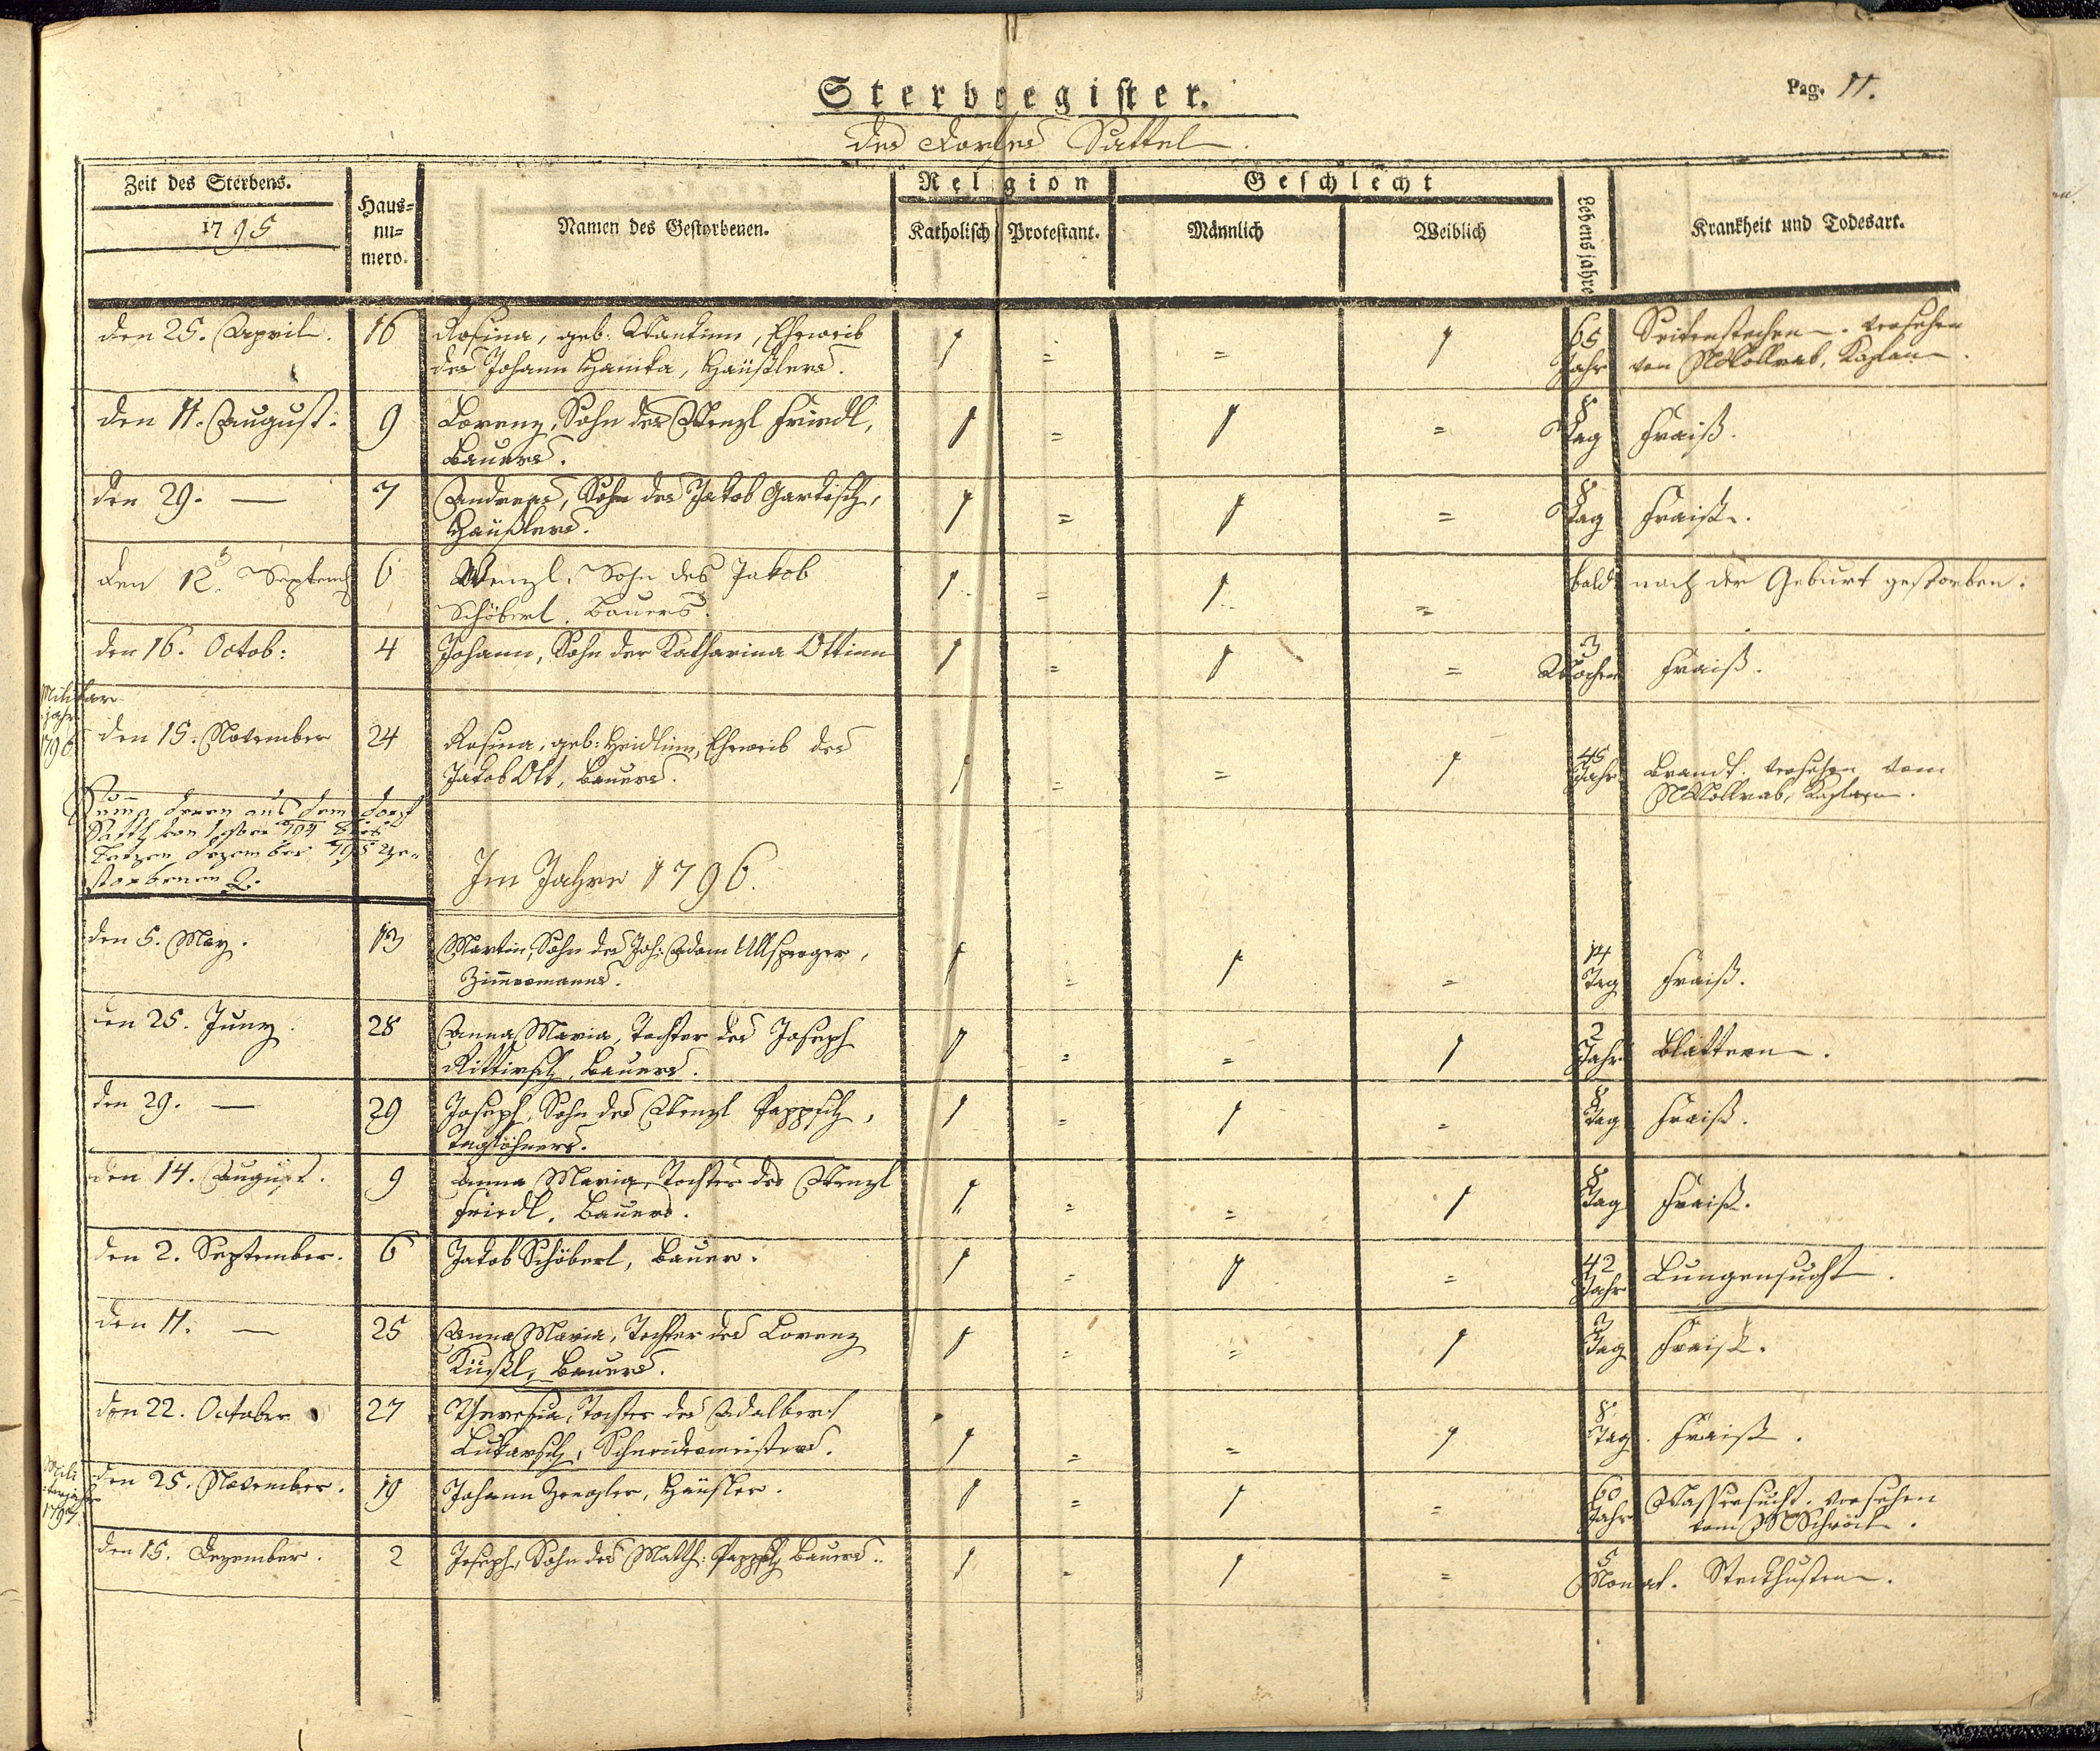 Pag. 11.
Sterbregister.
des Dorfes Sattel.
Zeit des Sterbens.
1795
Haus=
nu=
mero.
Namen des Gestorbenen.
Religion
Katholisch Protestant.
Geschlecht
Männlich Weiblich
Lebensjahre
Krankheit und Todesart.
den 25. April. 16 Rosina, geb: Eheweib 1 = = 1 65 Seitenstechen. versehen
des Johann Hanika, Häußlers. Jahr von Kaplan.
den 11. August. 9 Lorenz, Sohn des Wenzl Friedl, 1 = 1 = 8 Tag Fraiß.
Bauers.
den 29. — 7 Andreas, Sohn des Jakob Gartisch, 1 = 1 = 8 Tag Fraiß.
Häußlers.
den 12. Septemb 6 Wenzl, Sohn des Jakob 1 = 1 = bald nach der Geburt gestorben.
Schöberl, Bauers.
den 16. Octob: 4 Johann, Sohn der Katharina Ottinn 1 = 1 = 3 Wochen Fraiß.
Militar
jahr
1796
den 15. November 24 Rosina, geb: Heidlinn, Eheweib des 1 = = 1 45 Jahr Brand. versehen vom
Jakob Ott, Bauers. Kaplan.
Summa deren aus dem Dorf
storbenen
Im Jahre 1796.
den 5. May. 13 Martin, Sohn des Joh: Adam Ullsperger, 1 = 1 = 14 Tag Fraiß.
Zimmermanns.
den 25. Juny. 28 Anna Maria, Tochter des Joseph 1 = = 1 2 Jahr Blattern.
Rittirsch, Bauers.
den 29. — 29 Joseph, Sohn des Wenzl Pappsch, 1 = 1 = 8 Tag Fraiß.
Taglöhners.
den 14. August. 9 Anna Maria, Tochter des Wenzl 1 = = 1 8 Tag Fraiß.
Friedl, Bauers.
den 2. September. 6 Jakob Schöberl, Bauer. 1 = 1 = 42 Jahr Lungensucht.
den 11. — 25 Anna Maria, Tochter des Lorenz 1 = = 1 3 Tag Fraiß.
Bauers.
den 22. October 27 Theresia, Tochter des Adalbert 1 = = 1 8 Tag. Fraiß.
Lukarsch, Schneidermeisters.
Mili
tarjahr
1797.
den 25. November. 19 Johann Ziegler, Häusler. 1 = 1 = 60 Jahr Wassersucht. versehen
vom
den 15. Dezember. 2 Joseph, Sohn des Matth: Pappsch Bauers. 1 = 1 = 5 Monat. Steckhusten.